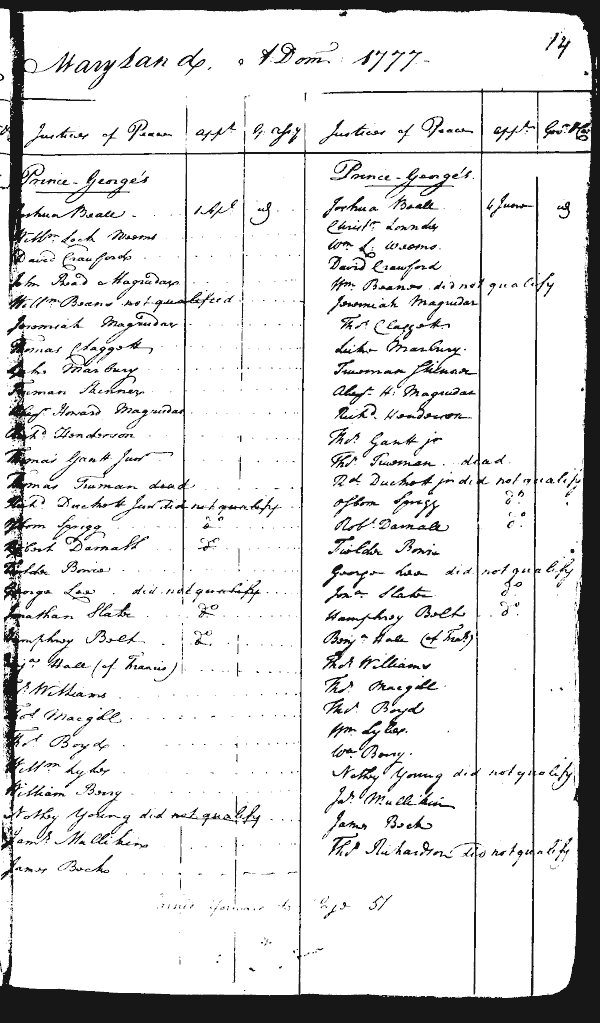 14
Maryland. A Dom. 1777.
Justices of Peace appt. Justices of Peace appt.
Prince-George's
Joshua Beale 1 Apl.
Willm. Lock Weems
David Craufords
John Read Magruder
Willm. Beans not qualified
Jeremiah Magruder
Thomas Claggett
Luke Marbury
Truman Skinner
Alexr. Howard Magruder
Richd. Henderson
Thomas Gantt Junr
Thomas Truman dead
Richd. Duckett Jun did not qualify
Osborn Sprigg do.
Robert Darnall do.
Fielder Bowie
George Lee did not qualify
Jonathan Slater do.
Humphrey Belt do.
Benja. Hall (of Francis)
Thos. Williams
Thos. Macgill
Thos. Boyd
Willm. Lyles
William Berry
Notley Young did not qualify
Jams. Mullikin
James Beck
Prince-George's
Joshua Beale 4 June
Christr. Lowndes
Wm. L. Weems
David Crawford
Wm. Beanes did not qualify
Jeremiah Magruder
Thos. Claggett
Luke Marbury.
Trueman Skinner
Alexr. H. Magruder
Richd. Henderson
Thos. Gantt jr
Thos. Trueman dead
Rd. Duckett jr did not qualify
Osborn Sprigg do.
Robt. Darnall do.
Fielder Bowie
George Lee did not qualify
Jona. Slater do.
Humphrey Belt do.
Benja. Hall (of Fras.)
Thos. Williams
Thos. Macgill
Thos. Boyd
Wm. Lyles.
Wm. Berry.
Notley Young did not qualify
Jas. Mullikin
James Beck
Thos. Richardson did not qualify
51